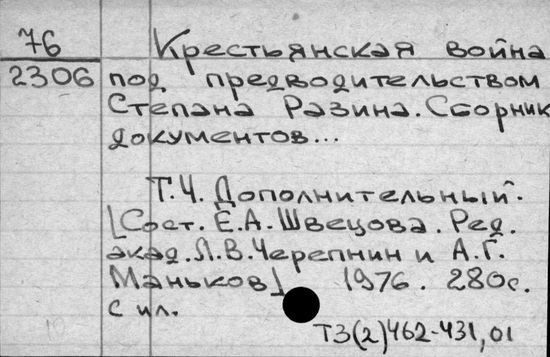 76
2306
Крестьянская война
под предводительством
Степана Разина. Сборник
документов...
Т.4. Дополнительный.
[Сост. Е.А. Швецова. Ред.
акад. Л.В. Черепнин и А.Г.
Маньков] 1976. 280с.
с ил.
Т3(2)462-431,01